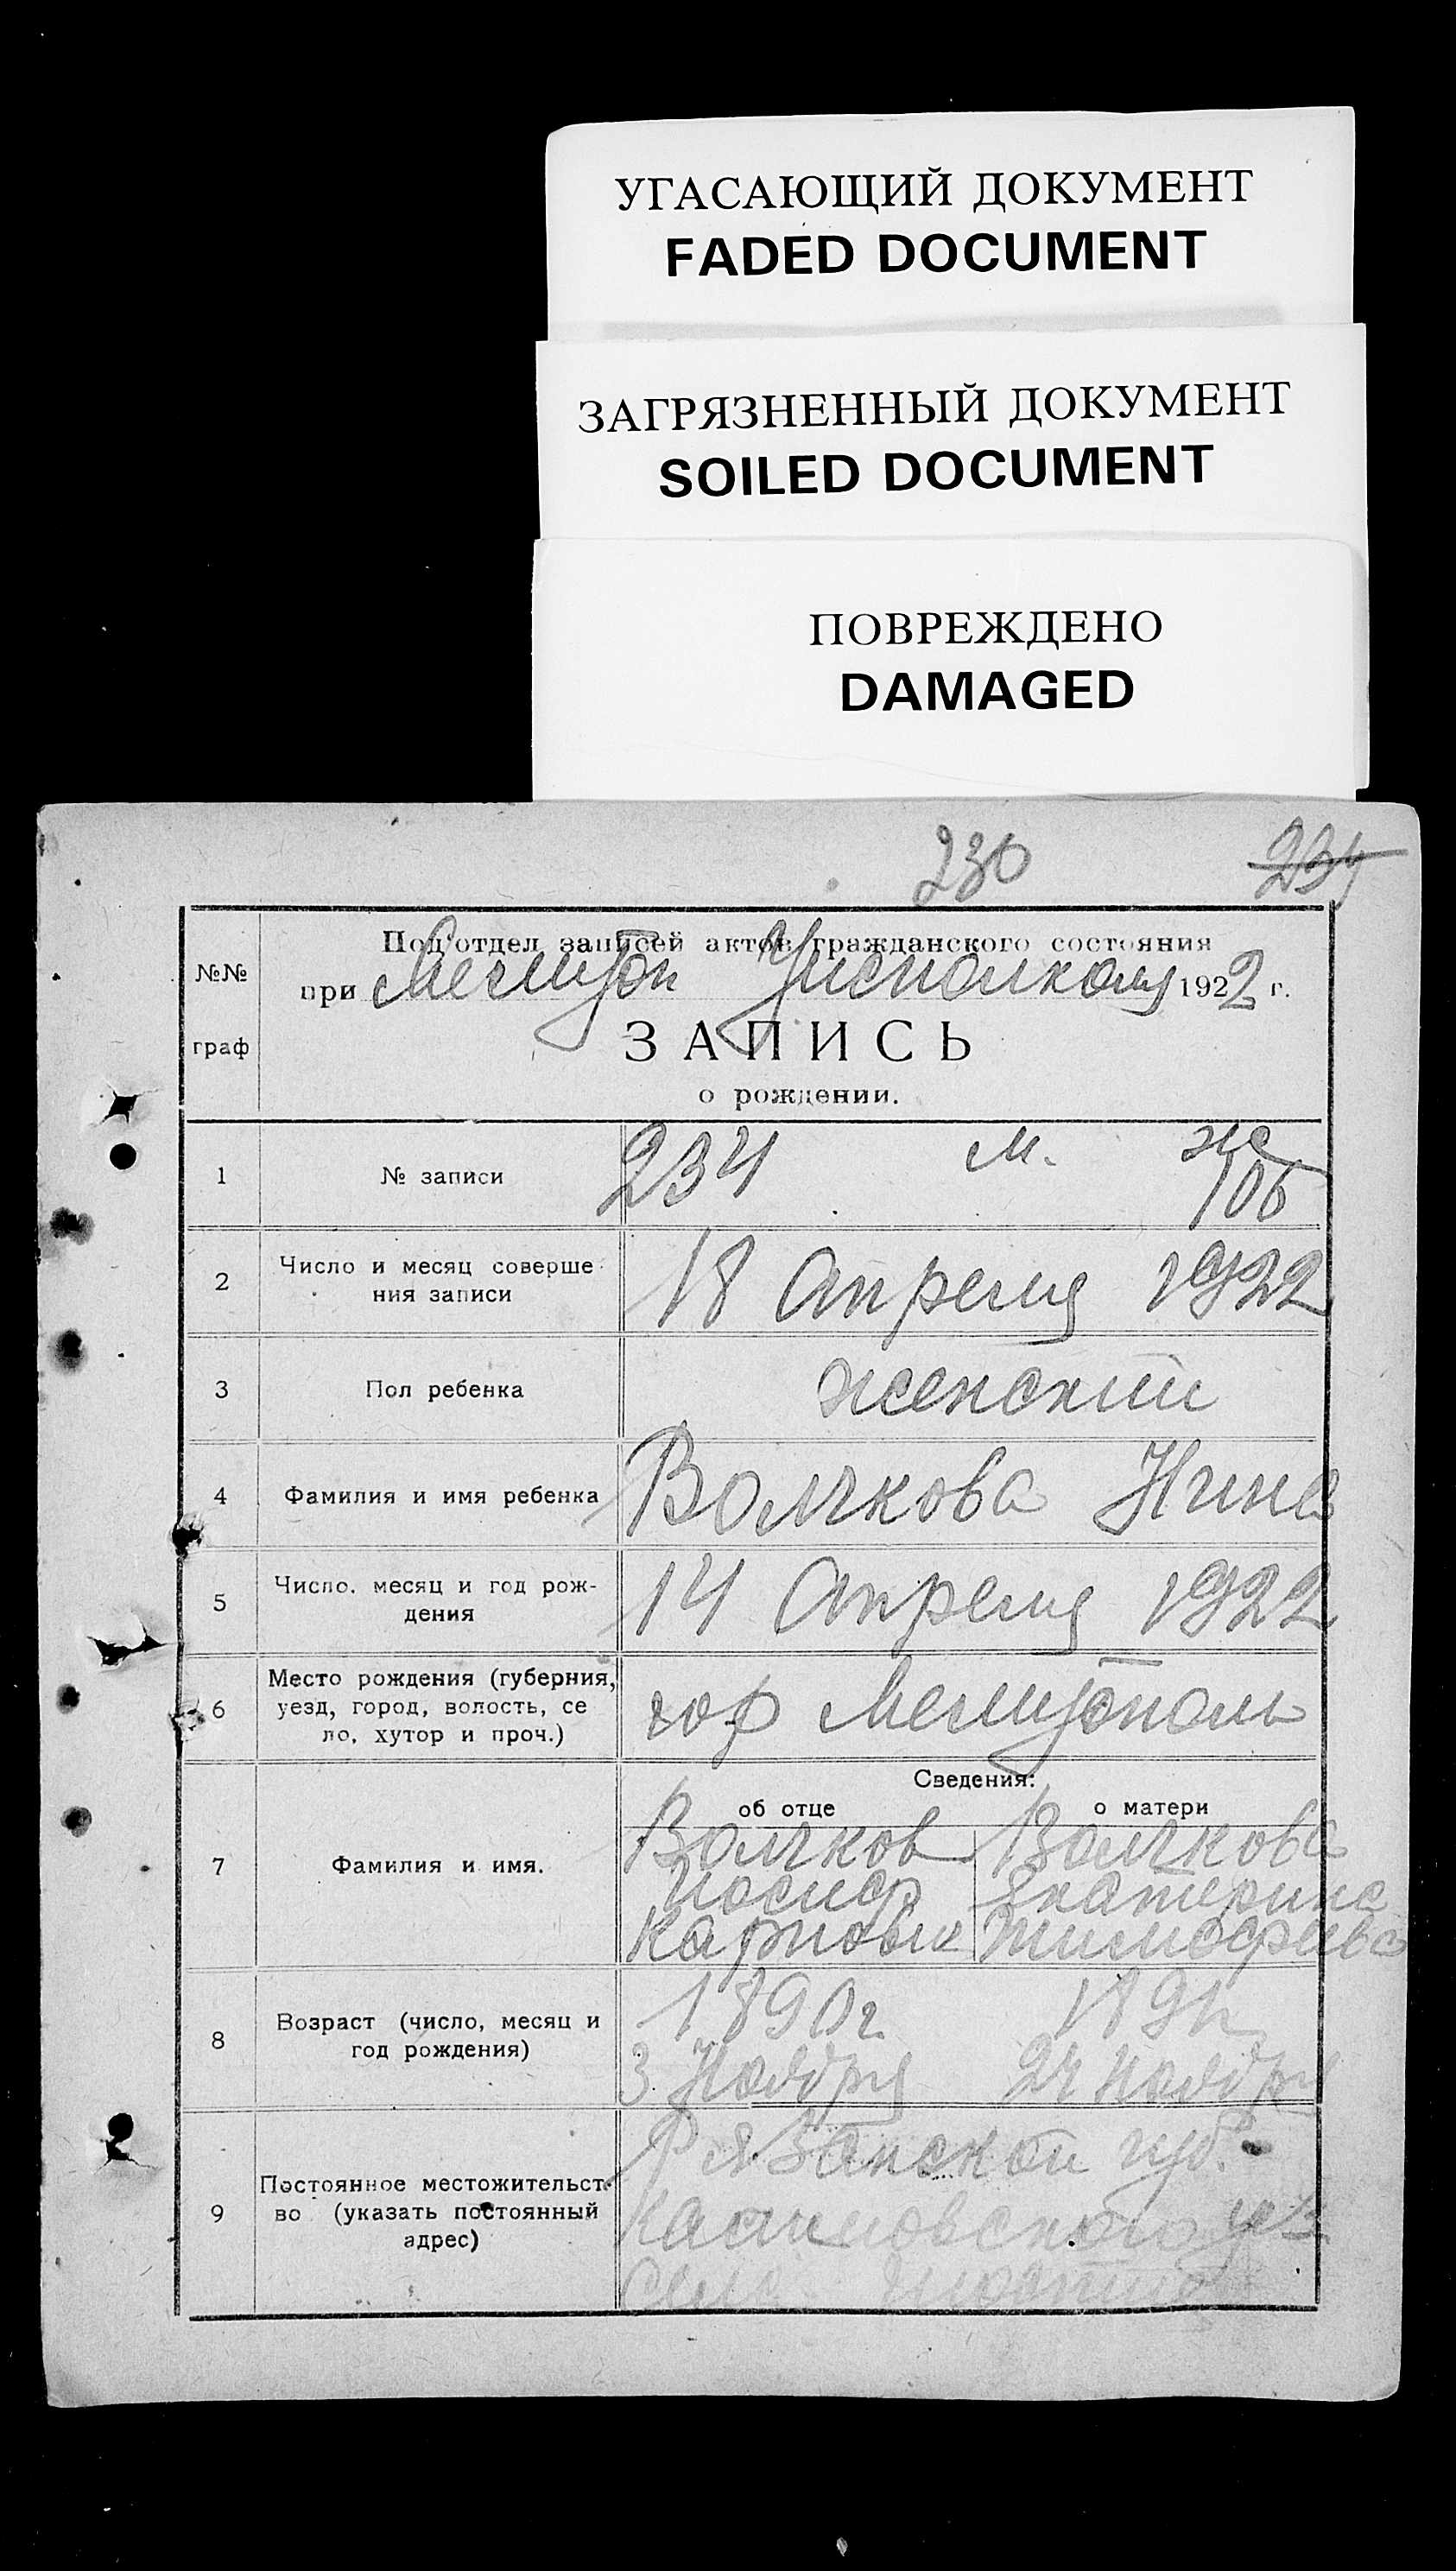 УГАСАЮЩИЙ ДОКУМЕНТ
FADED DOCUMENT
ЗАГРЯЗНЕННЫЙ ДОКУМЕНТ
SOILED DOCUMENT
ПОВРЕЖДЕНО
DAMAGED
230 234
№№ граф
Под'отдел записей актов гражданского состояния
при Мелитоп Уисполкому 1922 г.
ЗАПИСЬ
о рождении.
1 № записи 234 м. ж 106
2 Число и месяц соверше
ния записи
18 Апреля 1922
3 Пол ребенка женский
4 Фамилия и имя ребенка Волчкова Нина
5 Число, месяц и год рож-
дения
14 Апреля 1922
6 Место рождения (губерния,
уезд, город, волость, се
ло, хутор и проч.)
гор Мелитополь
Сведения:
об отце о матери
7 Фамилия и имя.
Волчков Волчкова
Иосиф Екатерина
Карпов Тимофеева
8 Возраст (число, месяц и
год рождения)
1890г.
3 Ноября 24 Ноября
9 Постоянное местожительст-
во (указать постоянный
адрес)
Рязанской губ.
Касимовского уез
Село